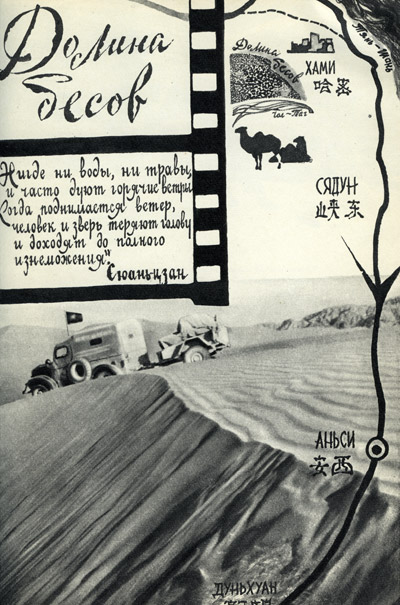 Долина
бесов
Нигде ни воды, ни травы,
и часто дуют горячие ветры.
Когда поднимается ветер,
человек и зверь теряют голову
и доходят до полного
изнеможения".
Сюаньцзан
Тянь-Шань
Долина
бесов
ХАМИ
哈密
СЯДУН
峡东
АНЬСИ
安西
ДУНЬХУАН